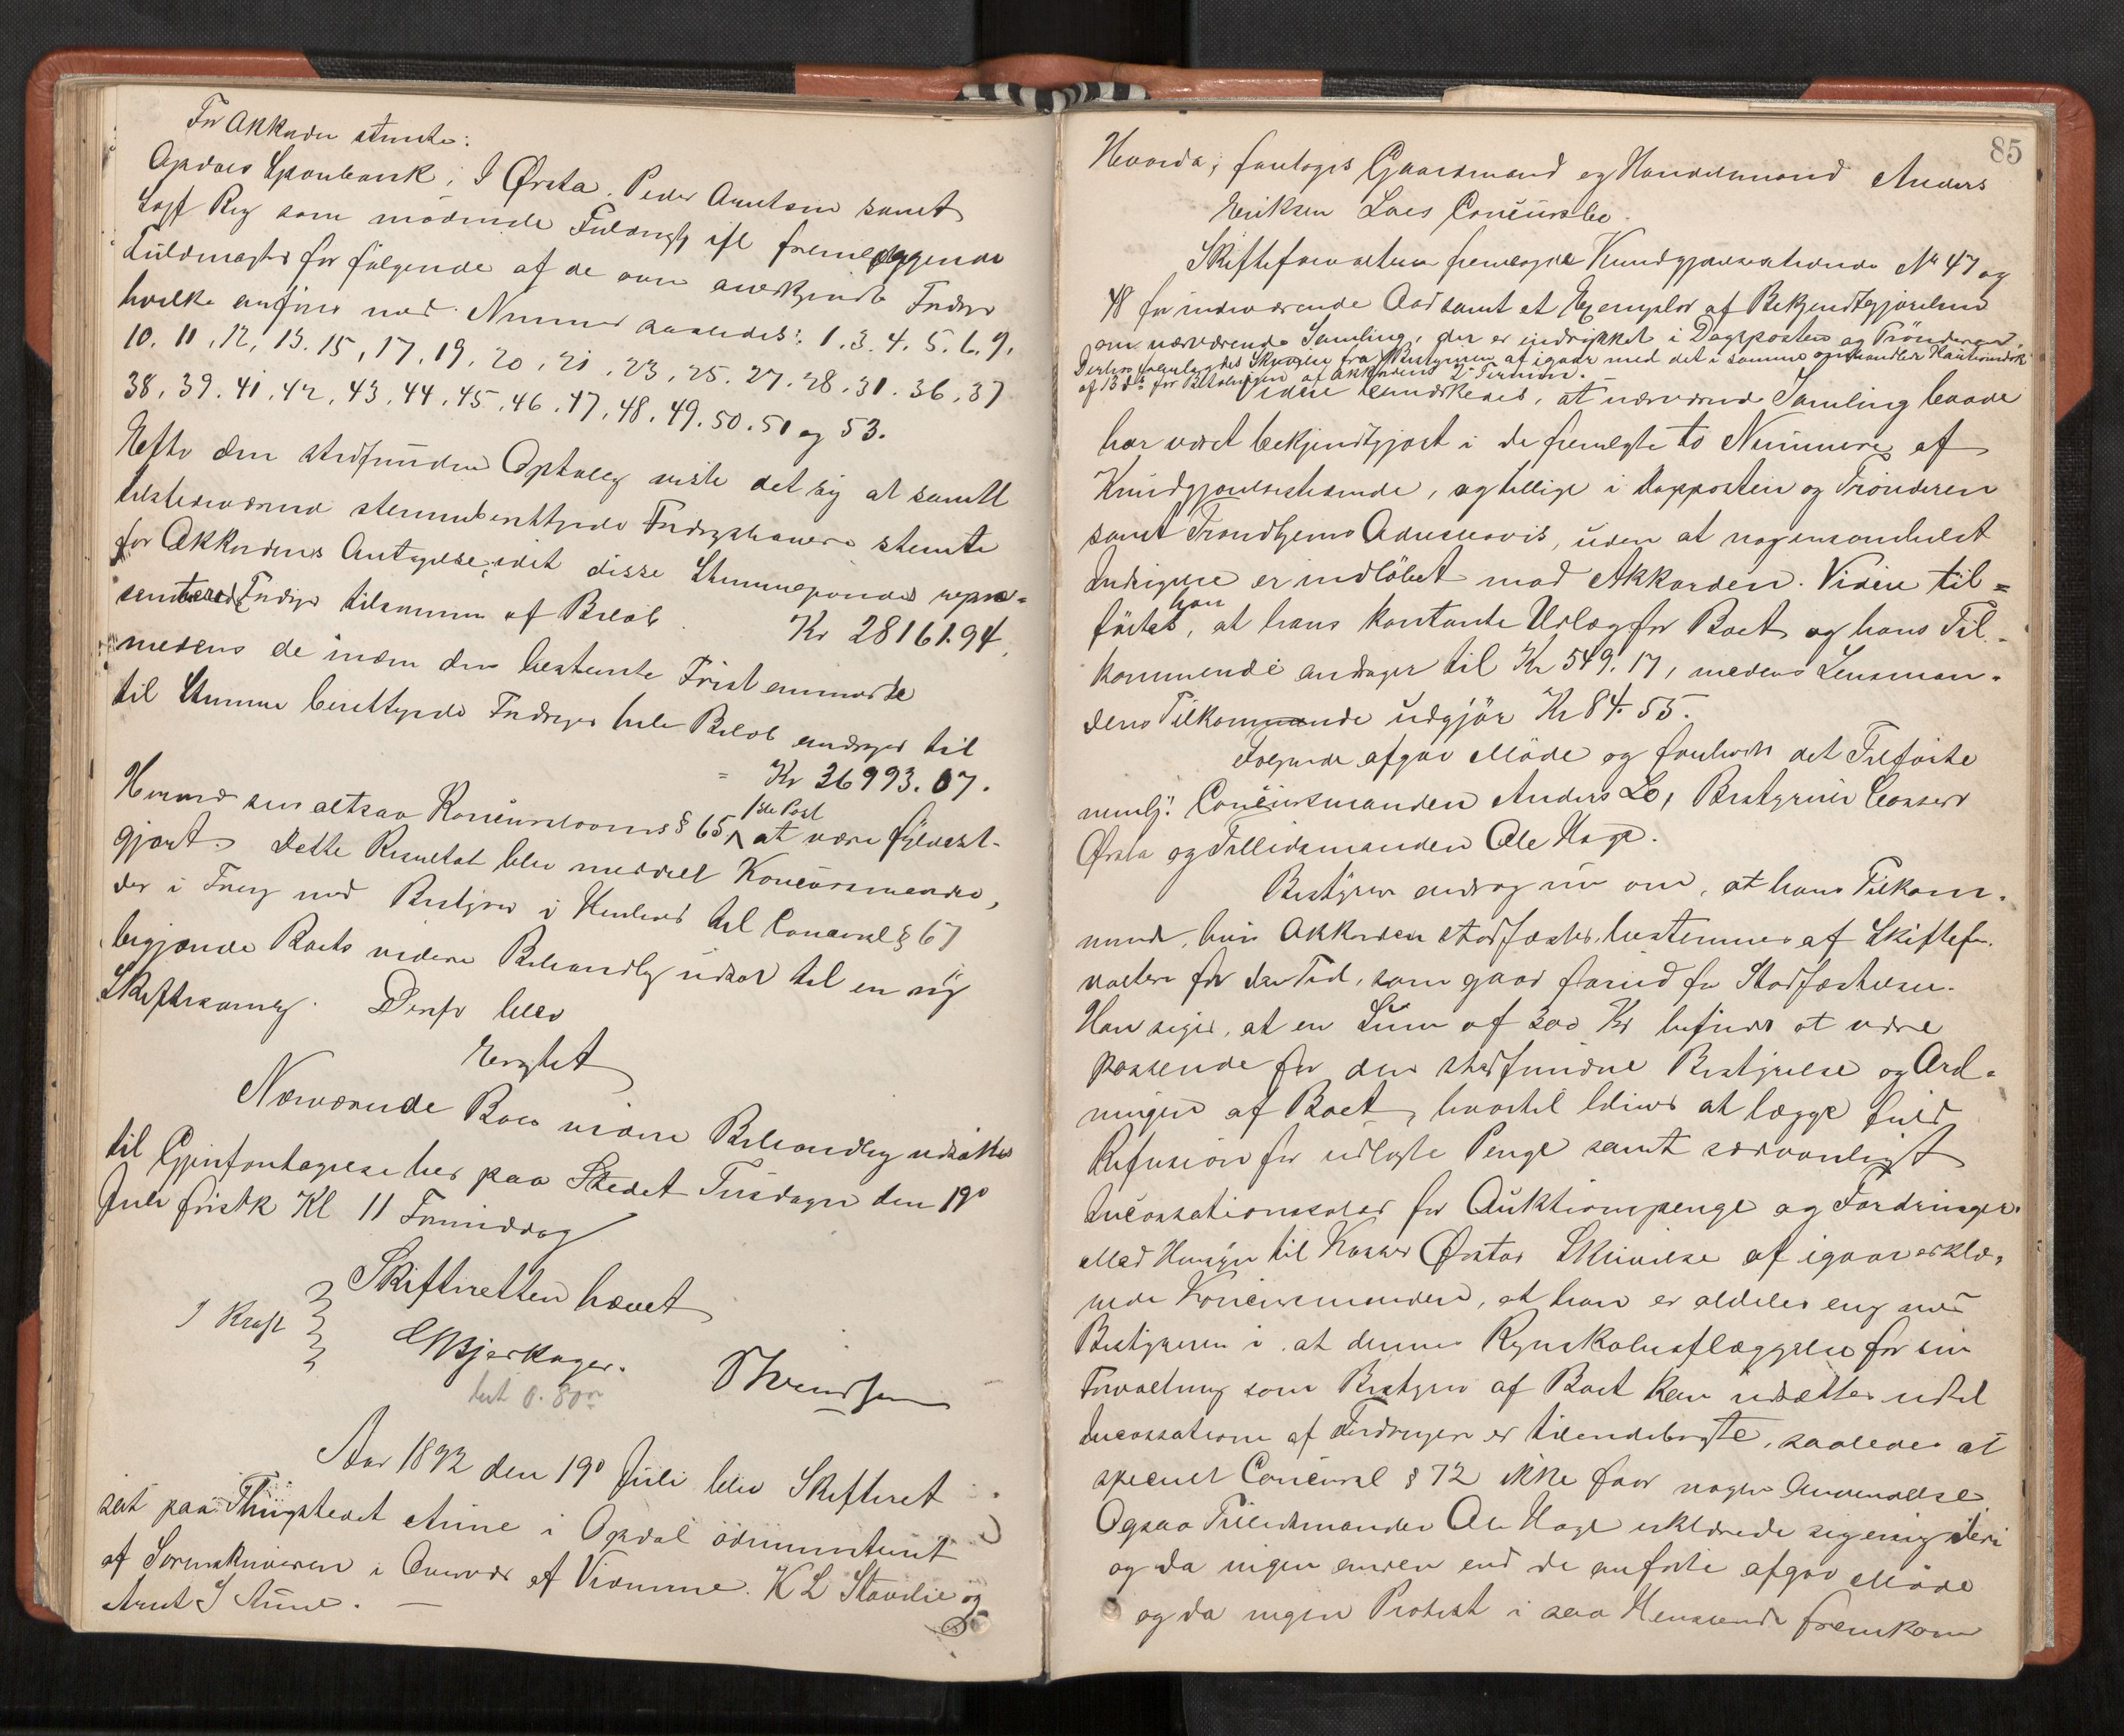 For Akkorden stemte:
Opdals Sparebank, I Ørsta. Peder Arntsen samt
som mødende Fuldmægt ifl fremlæggende
Fuldmagter for følgende af de oven anerkjendte Fordrer
hvilke anføres med Nummer saaledes: 1. 3. 4. 5. 6. 9.
10. 11, 12, 13. 15, 17. 19. 20, 21, 23, 25. 27. 28. 31. 36. 37
38, 39. 41, 42, 43, 44, 45, 46. 47, 48. 49. 50. 51 og 53.
Efter den stedfundne Optælling viste det sig at samtl
tilstedeværende stemmeberettigede Fordringshavere stemte
for Akkordens Antagelse, idet disse Stemmegivendes repræ-
senterede Fordringer tilsammen af Beløb Kr 28161.94,
medens de inden den bestemte Frist anmeldte
til Stemme berettigede Fordringer hele Beløb andrager til
= Kr 36993.07.
Hermed sees altsaa Koncurslovens § 65 1ste Post at være fyldest-
gjort. Dette Resultat blev meddelt Koncursmanden,
der i Forening med Bestyrer i Henhold til Concursl § 67
begjærede Boets videre Behandling udsat til en ny
Skiftesamling. Derfor blev
Eragtet
Nærværende Boes videre Behandling udsættes
til Gjenforetagelse her paa Stedet Tirsdagen den 19de
Juli førstk Kl 11 Formiddag
Skifteretten hævet
I Kraft
Bjerkager.
bet 0.80
Aar 1892 den 19de Juli blev Skifteret
sat paa Thingstedet Aune i Opdal administreret
af Sorenskriveren i Overvær af Vidnerne K L Stavlie og
Arnt J Aune. —
85
Hvorda, foretoges Gaardmand og Handelsmand Anders
Eriksen Loes Concursbo.
Skifteforvalteren fremlagde Kundgjørelsestidende No 47 og
48 for indeværende Aar samt et Exemplar af Bekjendtgjørelsen
om nærværende Samling, der er indrykket i Dagsposten og Trønderen.
Derhos fremlagdes Skrivelse fra Bestyreren af igaar med det i samme omhandlede Kautionsdok
af 13 ds for Betalingen af Akkordens 2 Terminer.
Videre bemærkedes, at nærværende Samling baade
har været bekjendtgjort i de fremlagte to Nummere af
Kundgjørelsestidende, og tillige i Dagsposten og Trønderen
samt Trondhjems Adresseavis, uden at nogensomhelst
Indsigelse er indløbet mod Akkorden. Videre til-
førtes han, at hans kontante Udlæg for Boet og hans Til-
kommende andrager til Kr 549.17, medens Lensman-
dens Tilkommende udgjør Kr 84.55.
Følgende afgav Møde og forelæstes det Tilførte
nemlig: Concursmanden Anders Lo, Bestyrer Kasserer
Ørsta og Tillidsmanden Ole Hage.
Bestyreren androg nu om, at hans Tilkom-
mende, hvis Akkorden stadfæstes, bestemmes af Skiftefor-
valteren for den Tid, som gaar forud for Stadfæstelsen.
Han siger, at en Sum af 300 Kr befindes at være
passende for den stedfundne Bestyrelse og Ord-
ningen af Boet, hvortil bliver at lægge fuld
Refusion for udlagte Penge samt sædvanligt
Incassationssalær for Auktionspenge og Fordringer.
Med Hensyn til Kasserer Ørstas Skrivelse af igaar erklæ-
rede Koncursmanden, at han er aldeles enig med
Bestyreren i, at dennes Regnskabsaflæggelse for sin
Forvaltning som Bestyrer af Boet kan udsættes indtil
Incassationen af Fordringer er tilendebragte, saaledes at
specielt Concursl § 72 ikke faar nogen Anvendelse.
Ogsaa Tillidsmanden Ole Hage erklærede sig enig deri
og da ingen anden end de anførte afgav Møde
og da ingen Protest i saa Henseende fremkom